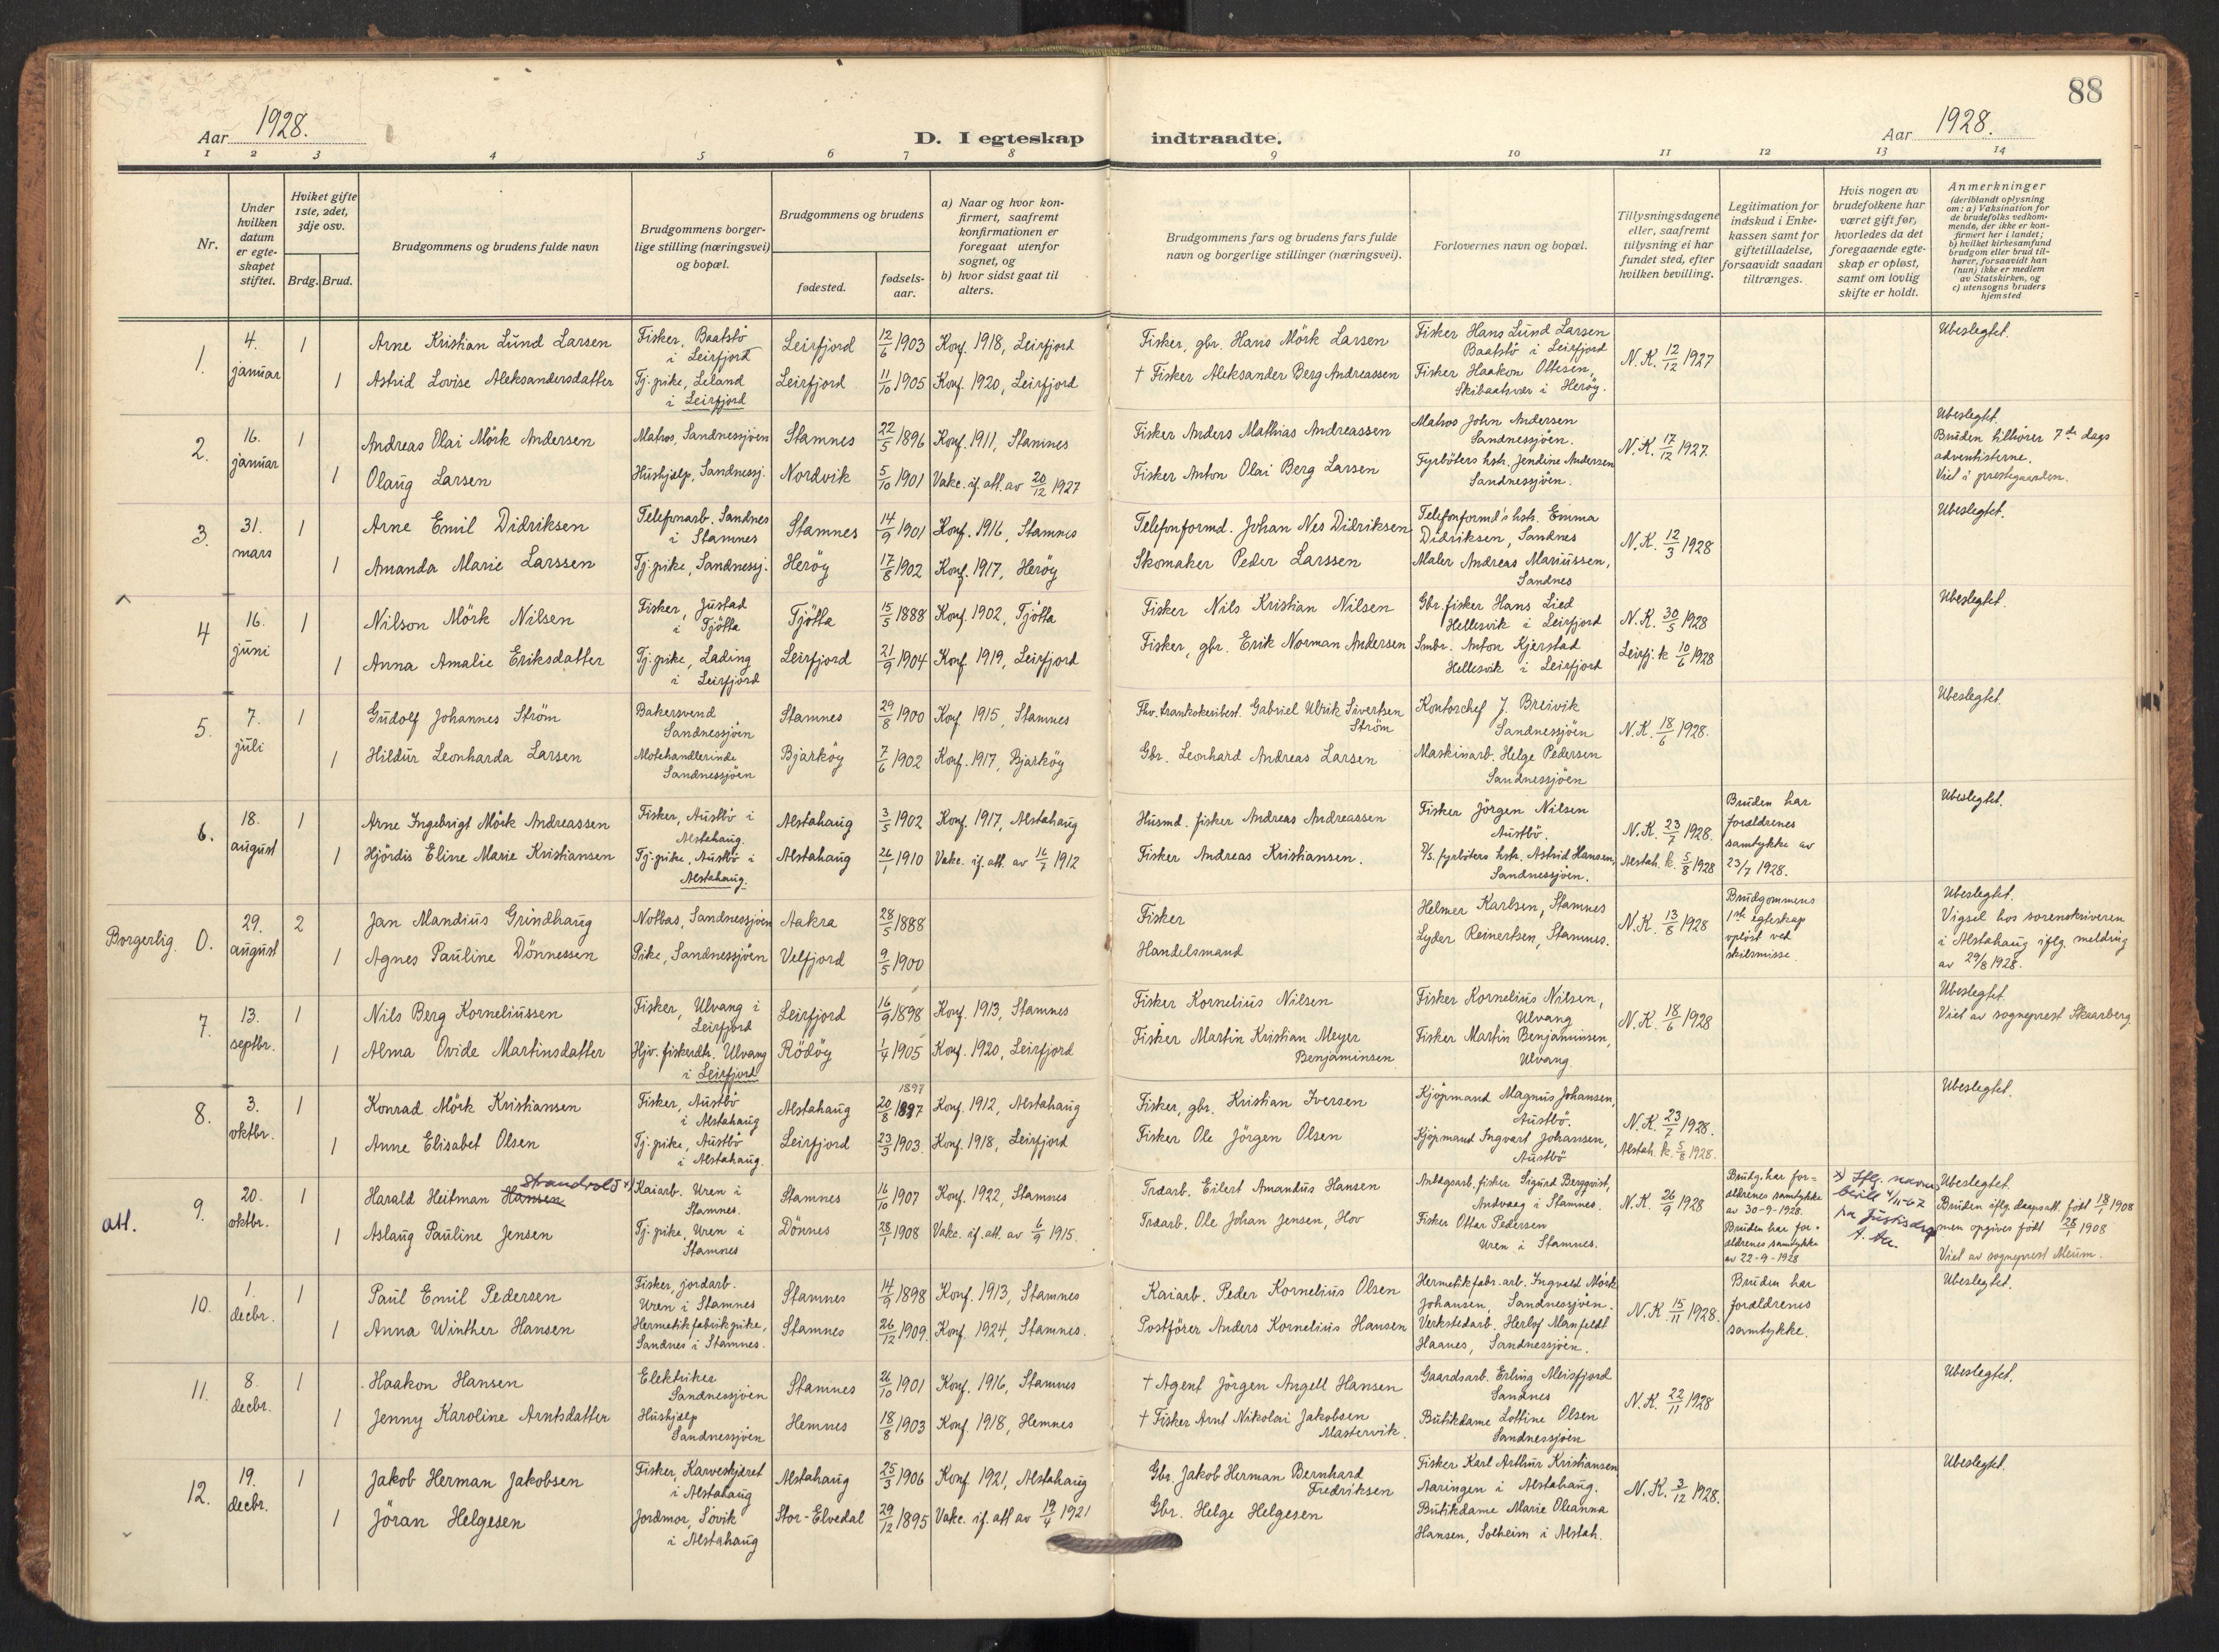 88
Aar 1928.
D. I egteskap indtraadte.
Aar 1928.
1 2 3 4 5 6 7 8 9 10 11 12 13 14
Nr.
Under hvilken datum er egteskapet stiftet.
Hviket gifte 1ste, 2det, 3dje osv.
Brdg. Brud.
Brudgommens og brudens fulde navn
Brudgommens borgerlige stilling (næringsvei) og bopæl.
Brudgommens og brudens
fødested.
fødselsaar.
a) Naar og hvor konfirmert, saafremt konfirmationen er foregaat utenfor sognet, og
b) hvor sidst gaat til alters.
Brudgommens fars og brudens fars fulde navn og borgerlige stillinger (næringsvei).
Forlovernes navn og bopæl.
Tillysningsdagene eller, saafremt tillysning ei har fundet sted, efter hvilken bevilling.
Legitimation for indskud i Enkekassen samt for giftetilladelse, forsaavidt saadan tiltrænges.
Hvis nogen av brudefolkene har været gift før, hvorledes da det foregaaende egteskap er opløst, samt om lovlig skifte er holdt.
Anmerkninger (deriblandt oplysning om: a) Vaksination for de brudefolks vedkommende, der ikke er konfirmert her i landet; b) hvilket kirkesamfund brudgom eller brud tilhører, forsaavidt han (hun) ikke er medlem av Statskirken, og c) utensogns bruders hjemsted
1. 4. januar 1 Arne Kristian Lund Larsen Fisker, Baatstö i Leirfjord Leirfjord 12/6 1903 Konf. 1918, Leirfjord Fisker, gbr. Hans Mörk Larsen Fisker Hans Lund Larsen Baatstö i Leirfjord N.K. 12/12 1927 Ubeslegtet.
1 Astrid Lovise Aleksandersdatter Tj. pike, Leland i Leirfjord Leirfjord 11/10 1905 Konf. 1920, Leirfjord † Fisker Aleksander Berg Andreassen Fisker Haakon Ottesen, Skibaatsvær i Heröy.
2. 16. januar 1 Andreas Olai Mörk Andersen Matros, Sandnessjöen Stamnes 22/5 1896 Konf. 1911, Stamnes Fisker Anders Mathias Andreassen Matros John Andersen Sandnessjöen. N.K. 17/12 1927. Ubeslegtet. Bruden tilhörer 7de dags adventisterne. Viet i prestegaarden.
1 Olaug Larsen Hushjælp, Sandnessj. Nordvik 5/10 1901 Vakc. if. att. av 20/12 1927 Fisker Anton Olai Berg Larsen Fyrböters hstr. Jendine Andersen Sandnessjöen.
3. 31. mars 1 Arne Emil Didriksen Telefonarb. Sandnes i Stamnes Stamnes 14/9 1901 Konf. 1916, Stamnes Telefonformd. Johan Nes Didriksen Telefonformd's hstr. Emma Didriksen, Sandnes N.K. 12/3 1928 Ubeslegtet.
1 Amanda Marie Larssen Tj. pike, Sandnessj. Heröy 17/8 1902 Konf. 1917, Heröy Skomaker Peder Larssen Maler Andreas Mariussen, Sandnes
4 16. juni 1 Nilson Mörk Nilsen Fisker, Justad i Tjötta Tjötta 15/5 1888 Konf. 1902, Tjötta Fisker Nils Kristian Nilsen Gbr. fisker Hans Lied Hellesvik i Leirfjord N.K. 30/5 1928 Ubeslegtet.
1 Anna Amalie Eriksdatter Tj. pike, Lading i Leirfjord Leirfjord 21/9 1904 Konf. 1919, Leirfjord Fisker, gbr. Erik Norman Andersen Smbr. Anton Kjerstad Hellesvik i Leirfjord Leirfj. k 10/6 1928
5. 7. juli 1 Gudolf Johannes Ström Bakersvend Sandnessjöen Stamnes 29/8 1900 Konf 1915, Stamnes Gabriel Ulrik Sivertsen Ström Kontorchef J. Breivik Sandnessjöen N.K. 18/6 1928. Ubeslegtet.
1 Hildur Leonharda Larsen Motehandlerinde Sandnessjöen Bjarköy 7/6 1902 Konf. 1917, Bjarköy Gbr. Leonhard Andreas Larsen Maskinarb. Helge Pedersen Sandnessjöen
6. 18. august 1 Arne Ingebrigt Mörk Andreassen Fisker, Austbö i Alstahaug. Alstahaug 3/5 1902 Konf. 1917, Alstahaug Husmd. fisker Andreas Andreassen Fisker Jörgen Nilsen Austbö. N.K. 23/7 1928. Bruden har forældrenes samtykke av 23/7 1928. Ubeslegtet.
1 Hjördis Eline Marie Kristiansen Tj. pike, Austbö i Alstahaug. Alstahaug 26/1 1910 Vakc. if. att. av 16/7 1912 Fisker Andreas Kristiansen. D/S. fyrböters hstr. Astrid Hansen, Sandnessjöen. Alstah. k. 5/8 1928
Borgerlig. 0. 29. august 2 Jan Mandius Grindhaug Notbas, Sandnessjöen Aakra 28/5 1888 Fisker Helmer Karlsen, Stamnes N.K. 13/8 1928 Brudgommens 1ste egteskap oplöst ved skilsmisse. Ubeslegtet. Vigsel hos sorenskriveren i Alstahaug iflg. melding av 29/8 1928.
1 Agnes Pauline Dönnessen Pike, Sandnessjöen Velfjord 9/5 1900 Handelsmand Lyder Reinertsen, Stamnes.
7. 13. septbr. 1 Nils Berg Korneliussen Fisker, Ulvang i Leirfjord Leirfjord 16/9 1898 Konf. 1913, Stamnes Fisker Kornelius Nilsen Fisker Kornelius Nilsen, Ulvang N.K. 18/6 1928 Ubeslegtet. Viet av sogneprest Skaarberg.
1 Alma Ovide Martinsdatter Hjv. fiskerdtr. Ulvang i Leirfjord Rödöy 1/4 1905 Konf. 1920, Leirfjord Fisker Martin Kristian Meyer Benjaminsen Fisker Martin Benjaminsen, Ulvang.
8. 3. oktbr. 1 Konrad Mörk Kristiansen Fisker, Austbö i Alstahaug Alstahaug 20/8 1897 1897 Konf. 1912, Alstahaug Fisker, gbr. Kristian Iversen Kjöpmand Magnus Johansen, Austbö. N.K. 23/7 1928. Ubeslegtet.
1 Anne Elisabet Olsen Tj. pike, Austbö i Alstahaug. Leirfjord 23/3 1903. Konf. 1918, Leirfjord Fisker Ole Jörgen Olsen Kjöpmand Ingvart Johansen, Austbö Alstah. k. 5/8 1928.
att. 9. 20. oktbr. 1 Harald Heitman Hansen Strandvold x) Kaiarb. Uren i Stamnes. Stamnes 16/10 1907 Konf. 1922, Stamnes Trdarb. Eilert Amandus Hansen Anlegsarb. fisker Sigurd Bergqvist, Andvaag i Stamnes. N.K. 26/9 1928 Brudg. har forældrenes samtykke av 30-9-1928. Bruden har forældrenes samtykke av 22-9-1928 x) Iflg. navne bevill 4/11-67 fra Justisdep Ubeslegtet. Bruden iflg. daapsatt. född 18/1 1908 men opgives född 28/1 1908 Viet av sogneprest Meum.
1 Aslaug Pauline Jensen Tj. pike, Uren i Stamnes Dönnes 28/1 1908 Vakc. if. att. av 6/9 1915. Trdarb. Ole Johan Jensen, Hov Fisker Ottar Pedersen Uren i Stamnes.
10. 1. decbr. 1 Paul Emil Pedersen Fisker, jordarb. Uren i Stamnes Stamnes 14/9 1898 Konf. 1913, Stamnes Kaiarb. Peder Kornelius Olsen Hermetikfabr.arb. Ingvald Mörk Johansen, Sandnessjöen. N.K 15/11 1928. Bruden har forældrenes samtykke. Ubeslegtet.
1 Anna Winther Hansen Hermetikfabrikpike, Sandnes i Stamnes. Stamnes 26/12 1909. Konf. 1924, Stamnes. Postförer Anders Kornelius Hansen Verkstedarb. Herlof Manfeldt Haanes, Sandnessjöen.
11. 8. decbr. 1 Haakon Hansen Elektriker Sandnessjöen Stamnes 21/10 1901 Konf. 1916, Stamnes † Agent Jörgen Angell Hansen Gaardsarb. Erling Meisfjord Sandnes N.K. 22/11 1928 Ubeslegtet.
1 Jenny Karoline Arntsdatter Hushjælp Sandnessjöen Hemnes 18/8 1903 Konf. 1918, Hemnes † Fisker Arnt Nikolai Jakobsen Mastervik. Butikdame Lottine Olsen Sandnessjöen
12. 19. decbr. 1 Jakob Herman Jakobsen Fisker, Karveskjæret i Alstahaug Alstahaug 25/3 1906 Konf 1921, Alstahaug Gbr. Jakob Herman Bernhard Fredriksen Fisker Karl Arthur Kristiansen Aaringen i Alstahaug. N.K. 3/12 1928. Ubeslegtet.
1 Jöran Helgesen Jordmor, Sövik i Alstahaug Stor-Elvedal 29/12 1895 Vakc. if. att av 19/4 1921 Gbr. Helge Helgesen Butikdame Marie Oleanna Hansen, Solheim i Alstah.